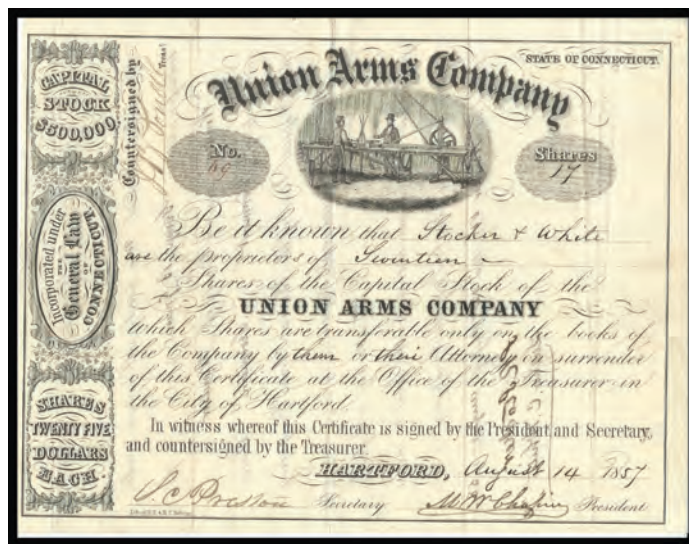 CAPITAL
STOCK
$500,000
Incorporated under
THE
General Law
OF
CONNECTICUT
SHARES
TWENTY FIVE
DOLLARS
EACH.
Countersigned by
Treasr
STATE OF CONNECTICUT.
Union Arms Company
No.
Shares
17
Be it known that Stocker & White
are the proprietors of Seventeen
Shares of the Capital Stock of the
UNION ARMS COMPANY
which Shares are transferable only on the books of
the Company by them or their Attorney on surrender
of this Certificate at the Office of the Treasurer in
the City of Hartford.
In witness whereof this Certificate is signed by the President and Secretary,
and countersigned by the Treasurer.
HARTFORD, August 14 1857
Secretary
President